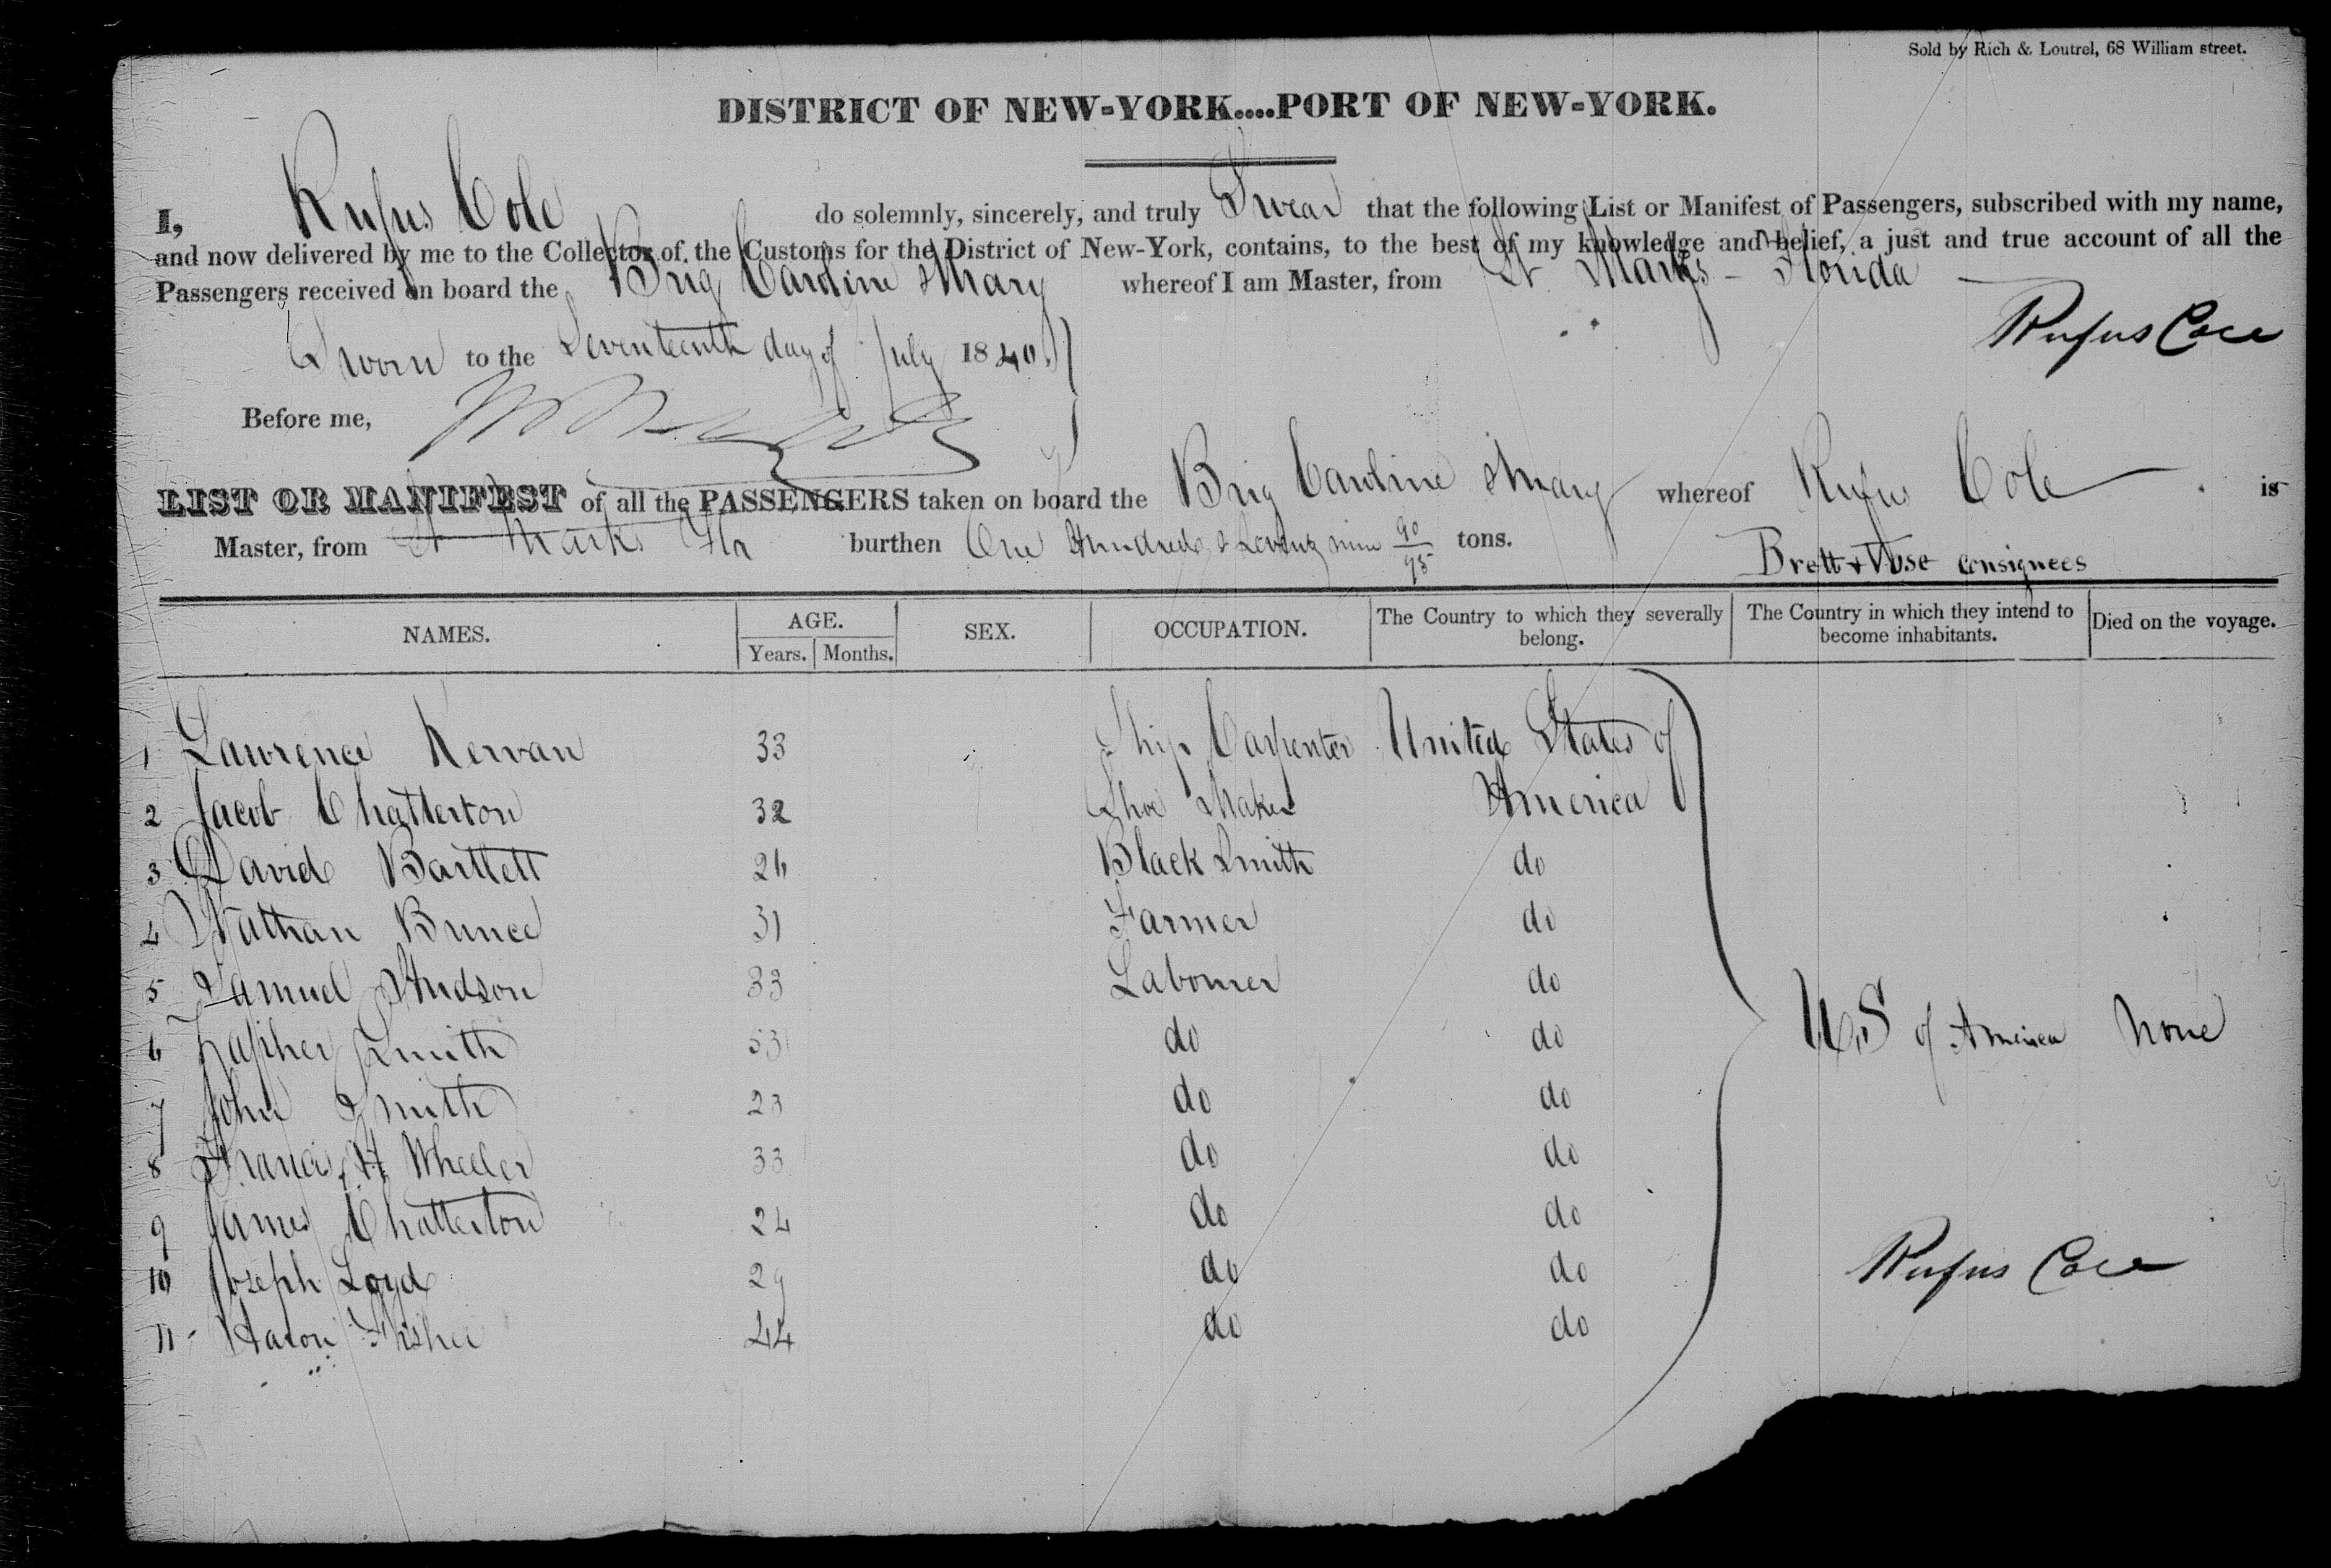 Sold by Rich & Loutrel, 68 William street.
DISTRICT OF NEW-YORK....PORT OF NEW-YORK.
I, Rufus Cole do solemnly, sincerely, and truly Swear that the following List or Manifest of Passengers, subscribed with my name,
and now delivered by me to the Collector of the Customs for the District of New-York, contains, to the best of my knowledge and belief, a just and true account of all the
Passengers received on board the Brig Caroline & Mary whereof I am Master, from St Marks - Florida
Rufus Cole
Sworn to the Seventeenth day of July 1840.
Before me,
LIST OR MANIFEST of all the PASSENGERS taken on board the Brig Caroline & Mary whereof Rufus Cole is
Master, from St Marks Fla burthen One Hundred & Seventy nine 90/95 tons.
Brett & Vose Consignees
NAMES. AGE. Years. Months. SEX. OCCUPATION. The Country to which they severally belong. The Country in which they intend to become inhabitants. Died on the voyage.
1 Lawrence Kervan 33 Ship Carpenter United States of
2 Jacob Chatterton 32 Shoe Maker America
3 David Bartlett 26 Black Smith do
4 Nathan Bunce 31 Farmer do
5 Samuel Hudson 33 Labourer do
6 Smith 53 do do
U,S of America None
7 John Smith 23 do do
8 Francis H Wheeler 33 do do
9 James Chatterton 24 do do
10 Joseph Loyd 29 do do
Rufus Cole
11 Aaron Fisher 44 do do